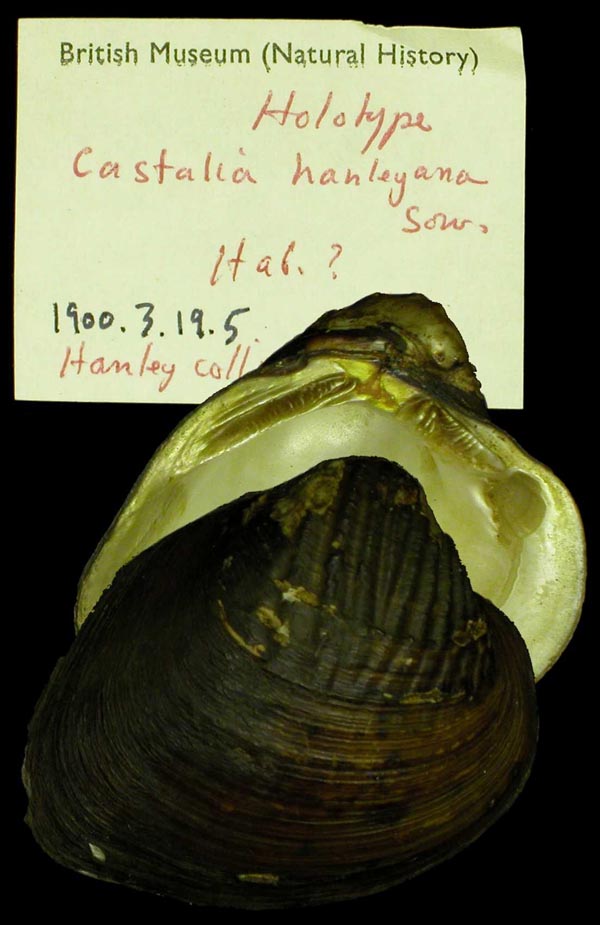 British Museum (Natural History)
Holotype
Castalia hanleyana
Sow.
Hab. ?
1900.3.19.5
Hanley coll